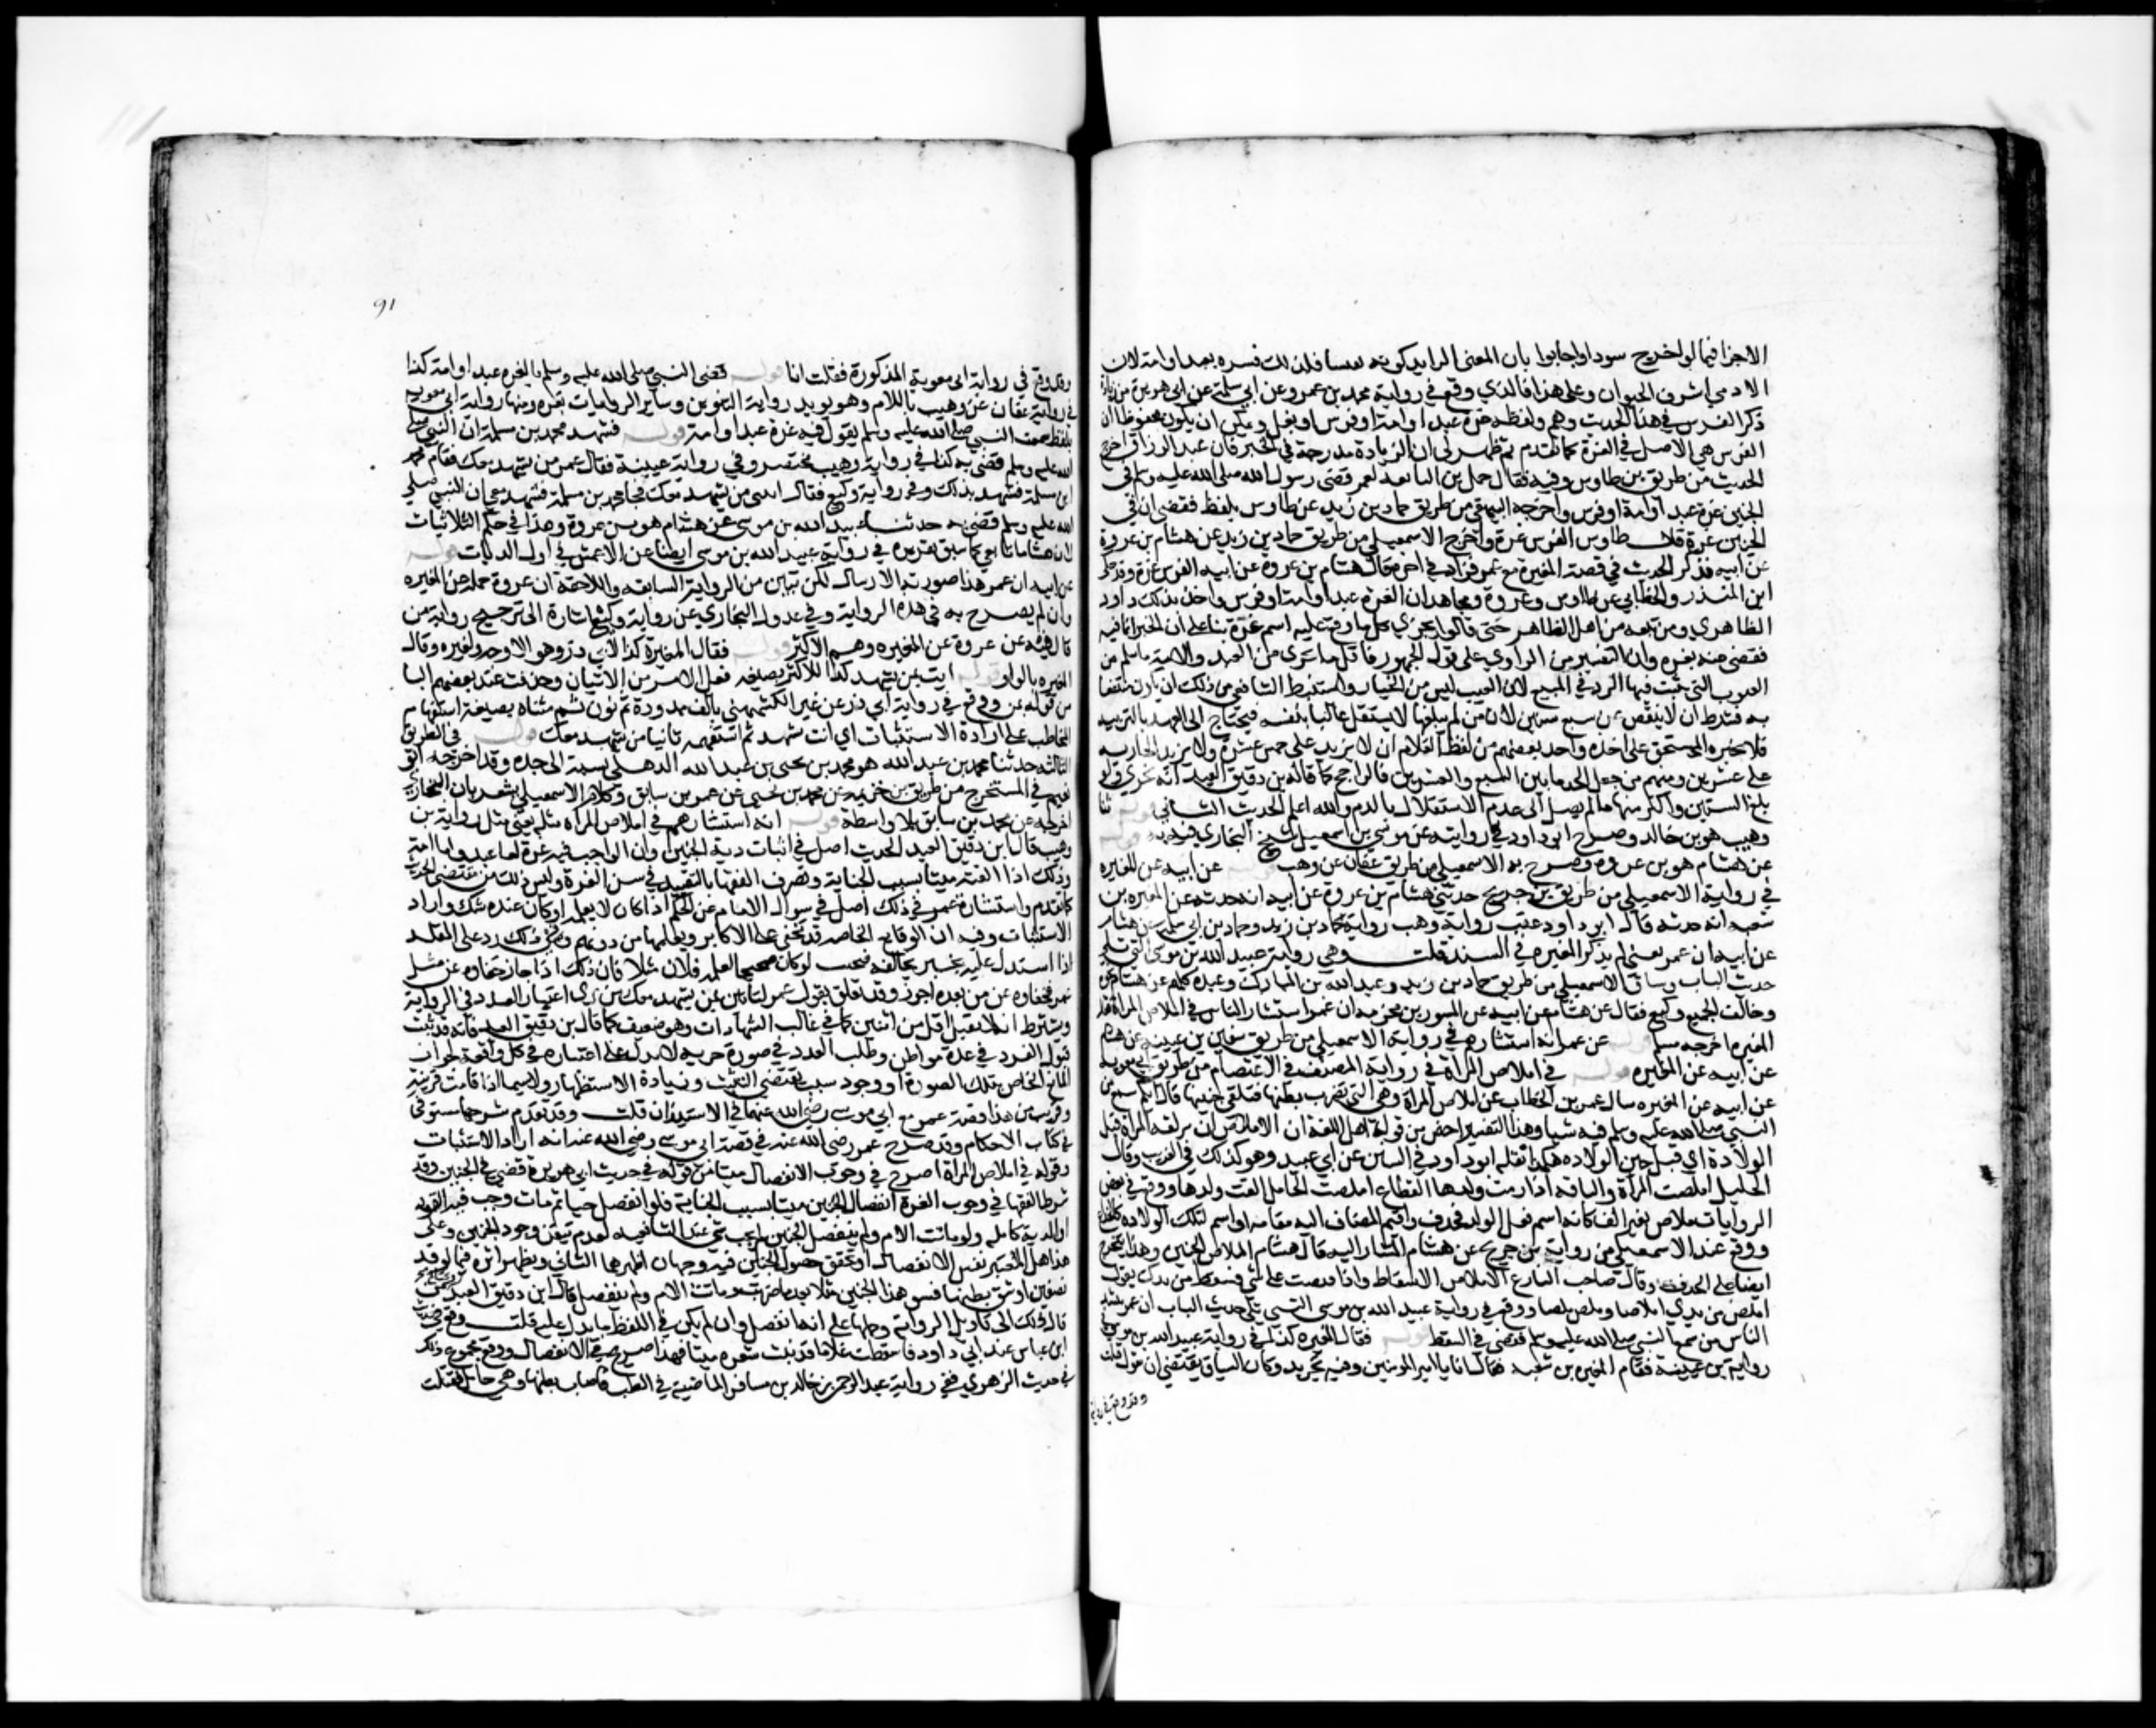 الاجزا فيما لو اخرج سودا واجابوا بان المعنى الزايد كونه نفيسا فلذلك فسره بعبد او امة لان
الادمي اشرف الحيوان وعلى هذا فالذي وقع في رواية محمد بن عمرو عن ابي سلمة عن ابي هريرة من زيادة
ذكر الفرس في هذا الحديث وهم ولفظه غرة عبد او امة او فرس او بغل ويمكن ان يكون محفوظا ان
الفرس هي الاصل في الغرة كما تقدم ثم ظهر لي ان الزيادة مدرجة في الخبر فان عبد الرزاق اخرج
الحديث من طريق بن طاوس وفيه فقال حمل بن النابغة لعمر قضى رسول الله صلى الله عليه وسلم في
الجنين غرة عبد او امة او فرس واخرجه البيهقي من طريق حماد بن زيد عن طاوس بلفظ فقضى ان في
الجنين غرة قال طاوس الفرس غرة واخرج الاسمعيلي من طريق حماد بن زيد عن هشام بن عروة
عن ابيه فذكر الحديث في قصة المغيرة مع عمر فزاد في اخره قال هشام بن عروة عن ابيه الفرس غرة وقد نقل
ابن المنذر والخطابي عن طاوس وعروة ومجاهد ان الغرة عبد او امة او فرس واخذ بذلك داود
الظاهري ومن تبعه من اهل الظاهر حتى قالوا يجزي كل ما وقع عليه اسم غرة بنا على ان الخبر انما فيه
فقضى فيه بغرة وان التفسير من الراوي على قول الجمهور فاقل ما يجزي من العبد والامة ما سلم من
العيوب التي يثبت فيها الرد في المبيع لان المعيب ليس من الخيار واستنبط الشافعي من ذلك ان يكون منتفعا
به فشرط ان لا ينقص عن سبع سنين لان من لم يبلغها لا يستقل غالبا بنفسه فيحتاج الى التعهد بالتربية
فلا يجبر المستحق على اخذه واخذ بعضهم من لفظ الغلام ان لا يزيد على خمس عشرة ولا تزيد الجارية
على عشرين ومنهم من جعل الحد ما بين السبع والعشرين فالراجح كما قاله بن دقيق العيد انه يجزي ولو
بلغ الستين واكثر منها ما لم يصل الى عدم الاستقلال بالهرم والله اعلم الحديث الثاني ثنا
وهيب هو بن خالد وصرح ابو داود في روايته عن موسى بن اسمعيل شيخ البخاري فيه به قوله
عن هشام هو بن عروة وصرح به الاسمعيلي من طريق عفان عن وهيب قوله عن ابيه عن المغيره
في رواية الاسمعيلي من طريق بن جريج حدثني هشام بن عروة عن ابيه انه حدثه عن المغيره بن
شعبه انه حدثه قال ابو داود عقب رواية وهيب رواية حماد بن زيد وحماد بن ابي سلمة عن هشام
عن ابيه ان عمر يعني لم يذكر المغيره في السند قلت وهي رواية عبيد الله بن موسى التي تلي
حديث الباب وساق الاسمعيلي من طريق حماد بن زيد وعبد الله بن المبارك وعبدة كلهم عن هشام نحوه
وخالف الجميع وكيع فقال عن هشام عن ابيه عن المسور بن مخرمة ان عمر استشار الناس في املاص المراة فقال
المغيره اخرجه مسلم قوله عن عمر انه استشارهم في رواية الاسمعيلي من طريق سفين بن عيينه عن هشام
عن ابيه عن المغيره قوله في املاص المراة في رواية المصنف في الاعتصام من طريق ابي معوية
عن ابيه عن المغيره سال عمر بن الخطاب عن املاص المراة وهي التي تضرب بطنها فتلقي جنينها فقال ايكم سمع من
النبي صلى الله عليه وسلم فيه شيا وهذا التفسير اخص من قول اهل اللغة ان الاملاص ان تزلقه المراة قبل
الولادة اي قبل حين الولاده هكذا نقله ابو داود في السنن عن ابي عبيد وهو كذلك في الغريب وقال
الخليل املصت المراة والناقه اذا رمت ولدها وقال بن القطاع املصت الحامل القت ولدها ووقع في بعض
الروايات ملاص بغير الف كانه اسم فعل الولد فحذف واقيم المضاف اليه مقامه او اسم لتلك الولاده كالخداج
ووقع عند الاسمعيلي من رواية بن جريج عن هشام المشار اليه قال هشام الملاص الجنين وهذا يتخرج
ايضا على الحذف وقال صاحب البارع الاملاص الاسقاط واذا قبضت على شي فسقط من يدك تقول
املص من يدي املاصا وملص ملصا ووقع في رواية عبيد الله بن موسى التي تلي حديث الباب ان عمر نشد
الناس من سمع النبي صلى الله عليه وسلم قضى في السقط قوله فقال المغيره كذا في رواية عبيد الله بن موسى
رواية بن عيينة فقام المغيره بن شعبه فقال انا يا امير المومنين وفيه تجريد وكان السياق يقتضي ان يقول فقلت
وقد وقع في رواية
91
وقد وقع في رواية ابي معوية المذكورة فقلت انا قوله قضى النبي صلى الله عليه وسلم بالغرة عبد او امة كذا
في رواية عفان عن وهيب باللام وهو يويد رواية التنوين وساير الروايات بغره ومنها رواية ابي معوية
بلفظ سمعت النبي صلى الله عليه وسلم يقول فيه غرة عبد او امة قوله فشهد محمد بن مسلمة ان النبي صلى
الله عليه وسلم قضى به كذا في رواية وهيب مختصرا وفي رواية عيينة فقال عمر من يشهد معك فقام محمد
بن مسلمة فشهد بذلك وفي رواية وكيع فقال ائتني من يشهد معك فجا محمد بن مسلمة فشهد معي ان النبي صلى
الله عليه وسلم قضى به حدثنا عبيد الله بن موسى عن هشام هو بن عروة وهذا في حكم الثلاثيات
لان هشاما تابعي كما سبق تقريره في رواية عبيد الله بن موسى ايضا عن الاعمش في اول الديات قوله
عن ابيه ان عمر هذا صورته الارسال لكن تبين من الرواية السابقه واللاحقة ان عروة حمله عن المغيره
وان لم يصرح به في هذه الرواية وفي عدول البخاري عن رواية وكيع اشارة الى ترجيح رواية من
قال فيه عن عروة عن المغيره وهم الاكثر قوله فقال المغيرة كذا لابي ذر وهو الاوجه ولغيره وقال
المغيره بالواو قوله ايت من يشهد كذا للاكثر بصيغه فعل الامر من الاتيان وحذفت عند بعضهم البا
من قوله بمن ووقع في رواية ابي ذر عن غير الكشميهني بالف ممدودة ثم نون ثم مثناه بصيغة استفهام
المخاطب على ارادة الاستثبات اي انت تشهد ثم استفهمه ثانيا من يشهد معك قوله في الطريق
الثالثه حدثنا محمد بن عبد الله هو محمد بن يحيى بن عبد الله الذهلي نسبه الى جده وقد اخرجه ابو
نعيم في المستخرج من طريق بن خزيمه عن محمد بن يحيى عن عمر بن سابق وكلام الاسمعيلي يشعر بان البخاري
اخرجه عن محمد بن سابق بلا واسطة قوله انه استشارهم في املاص المراه مثله يعني مثل رواية بن
وهيب قال ابن دقيق العيد الحديث اصل في اثبات دية الجنين وان الواجب فيه غرة اما عبد واما امة
وذلك اذا القته ميتا بسبب الجناية وتصرف الفقها بالتقييد في سن الغرة وليس ذلك من مقتضى الحديث
كما تقدم واستشارة عمر في ذلك اصل في سوال الامام عن الحكم اذا كان لا يعلمه او كان عنده شك او اراد
الاستثبات وفيه ان الوقايع الخاصه قد تخفى على الاكابر ويعلمها من دونهم وفي ذلك رد على المقلد
اذا استدل عليه بخبر يخالفه فيجيب لو كان صحيحا لعلمه فلان مثلا فان ذلك اذا جاز خفاوه عن مثل
عمر فخفاوه عن من بعده اجوز وقد تعلق بقول عمر لتاتين بمن يشهد معك من يرى اعتبار العدد في الرواية
ويشترط انه لا يقبل اقل من اثنين كما في غالب الشهادات وهو ضعيف كما قال بن دقيق العيد فانه قد ثبت
قبول الفرد في عدة مواطن وطلب العدد في صورة جزيية لا يدل على اعتباره في كل واقعة لجواز
المانع الخاص بتلك الصورة او وجود سبب يقتضي التثبت وزيادة الاستظهار ولا سيما اذا قامت قرينة
وقريب من هذا قصة عمر مع ابي موسى رضي الله عنهما في الاستيذان قلت وقد تقدم شرحها مستوفى
في كتاب الاحكام وقد صرح عمر رضي الله عنه في قصة ابي موسى رضي الله عنه انه اراد الاستثبات
وقوله في املاص المراة اصرح في وجوب الانفصال ميتا من قوله في حديث ابي هريرة قضى في الجنين وقد
شرط الفقها في وجوب الغرة انفصال الجنين ميتا بسبب الجناية فلو انفصل حيا ثم مات وجب فيه القود
او الدية كاملة ولو ماتت الام ولم ينفصل الجنين لم يجب شي عند الشافعيه لعدم تيقن وجود الجنين وعلى
هذا هل المعتبر نفس الانفصال او تحقق حصول الجنين فيه وجهان اظهرهما الثاني ويظهر اثره فيما لو قد
نصفين او شق بطنها فسو هذا الجنين مثلا بعد ما ضربت وماتت الام ولم ينفصل قال ابن دقيق العيد
قال ذلك الى تاويل الرواية وحملها على انها انفصل وان لم يكن في اللفظ ما يدل عليه قلت وقع في حديث
ابن عباس عند ابي داود فاسقطت غلاما قد نبت شعره ميتا فهذا صريح في الانفصال ووقع مجموع ذلك
في حديث الزهري ففي رواية عبد الرحمن بن خالد بن مسافر الماضية في الطب فاصاب بطنها وهي حامل فقتلت